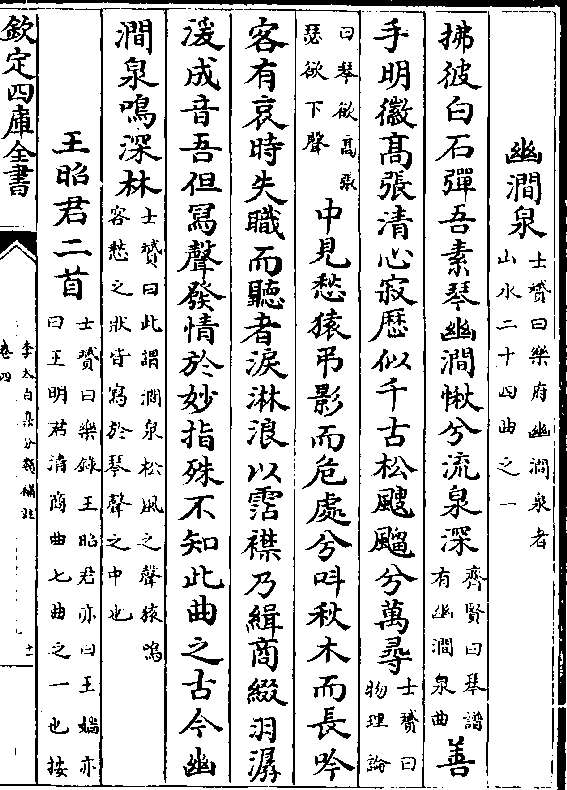 幽澗泉
士贇曰樂府幽澗泉者
山水二十四曲之一
拂彼白石彈吾素琴幽澗愀兮流泉深
齊賢曰琴譜
有幽澗泉曲
善
手明徽髙張清心寂歴似千古松飀飀兮萬尋
士贇曰
物理論
曰琴欲髙張
瑟欲下聲
中見愁猿弔影而危處兮呌秋木而長吟
客有哀時失職而聽者淚淋浪以霑襟乃緝商綴羽潺
湲成音吾但寫聲發情於妙指殊不知此曲之古今幽
澗泉鳴深林
士贇曰此謂澗泉松風之聲猿鳴
客愁之狀皆寫於琴聲之中也
王昭君二首
士贇曰樂錄王昭君亦曰王嬙亦
曰王明君清商曲七曲之一也按
欽定四庫全書
李太白集分類補註
卷四